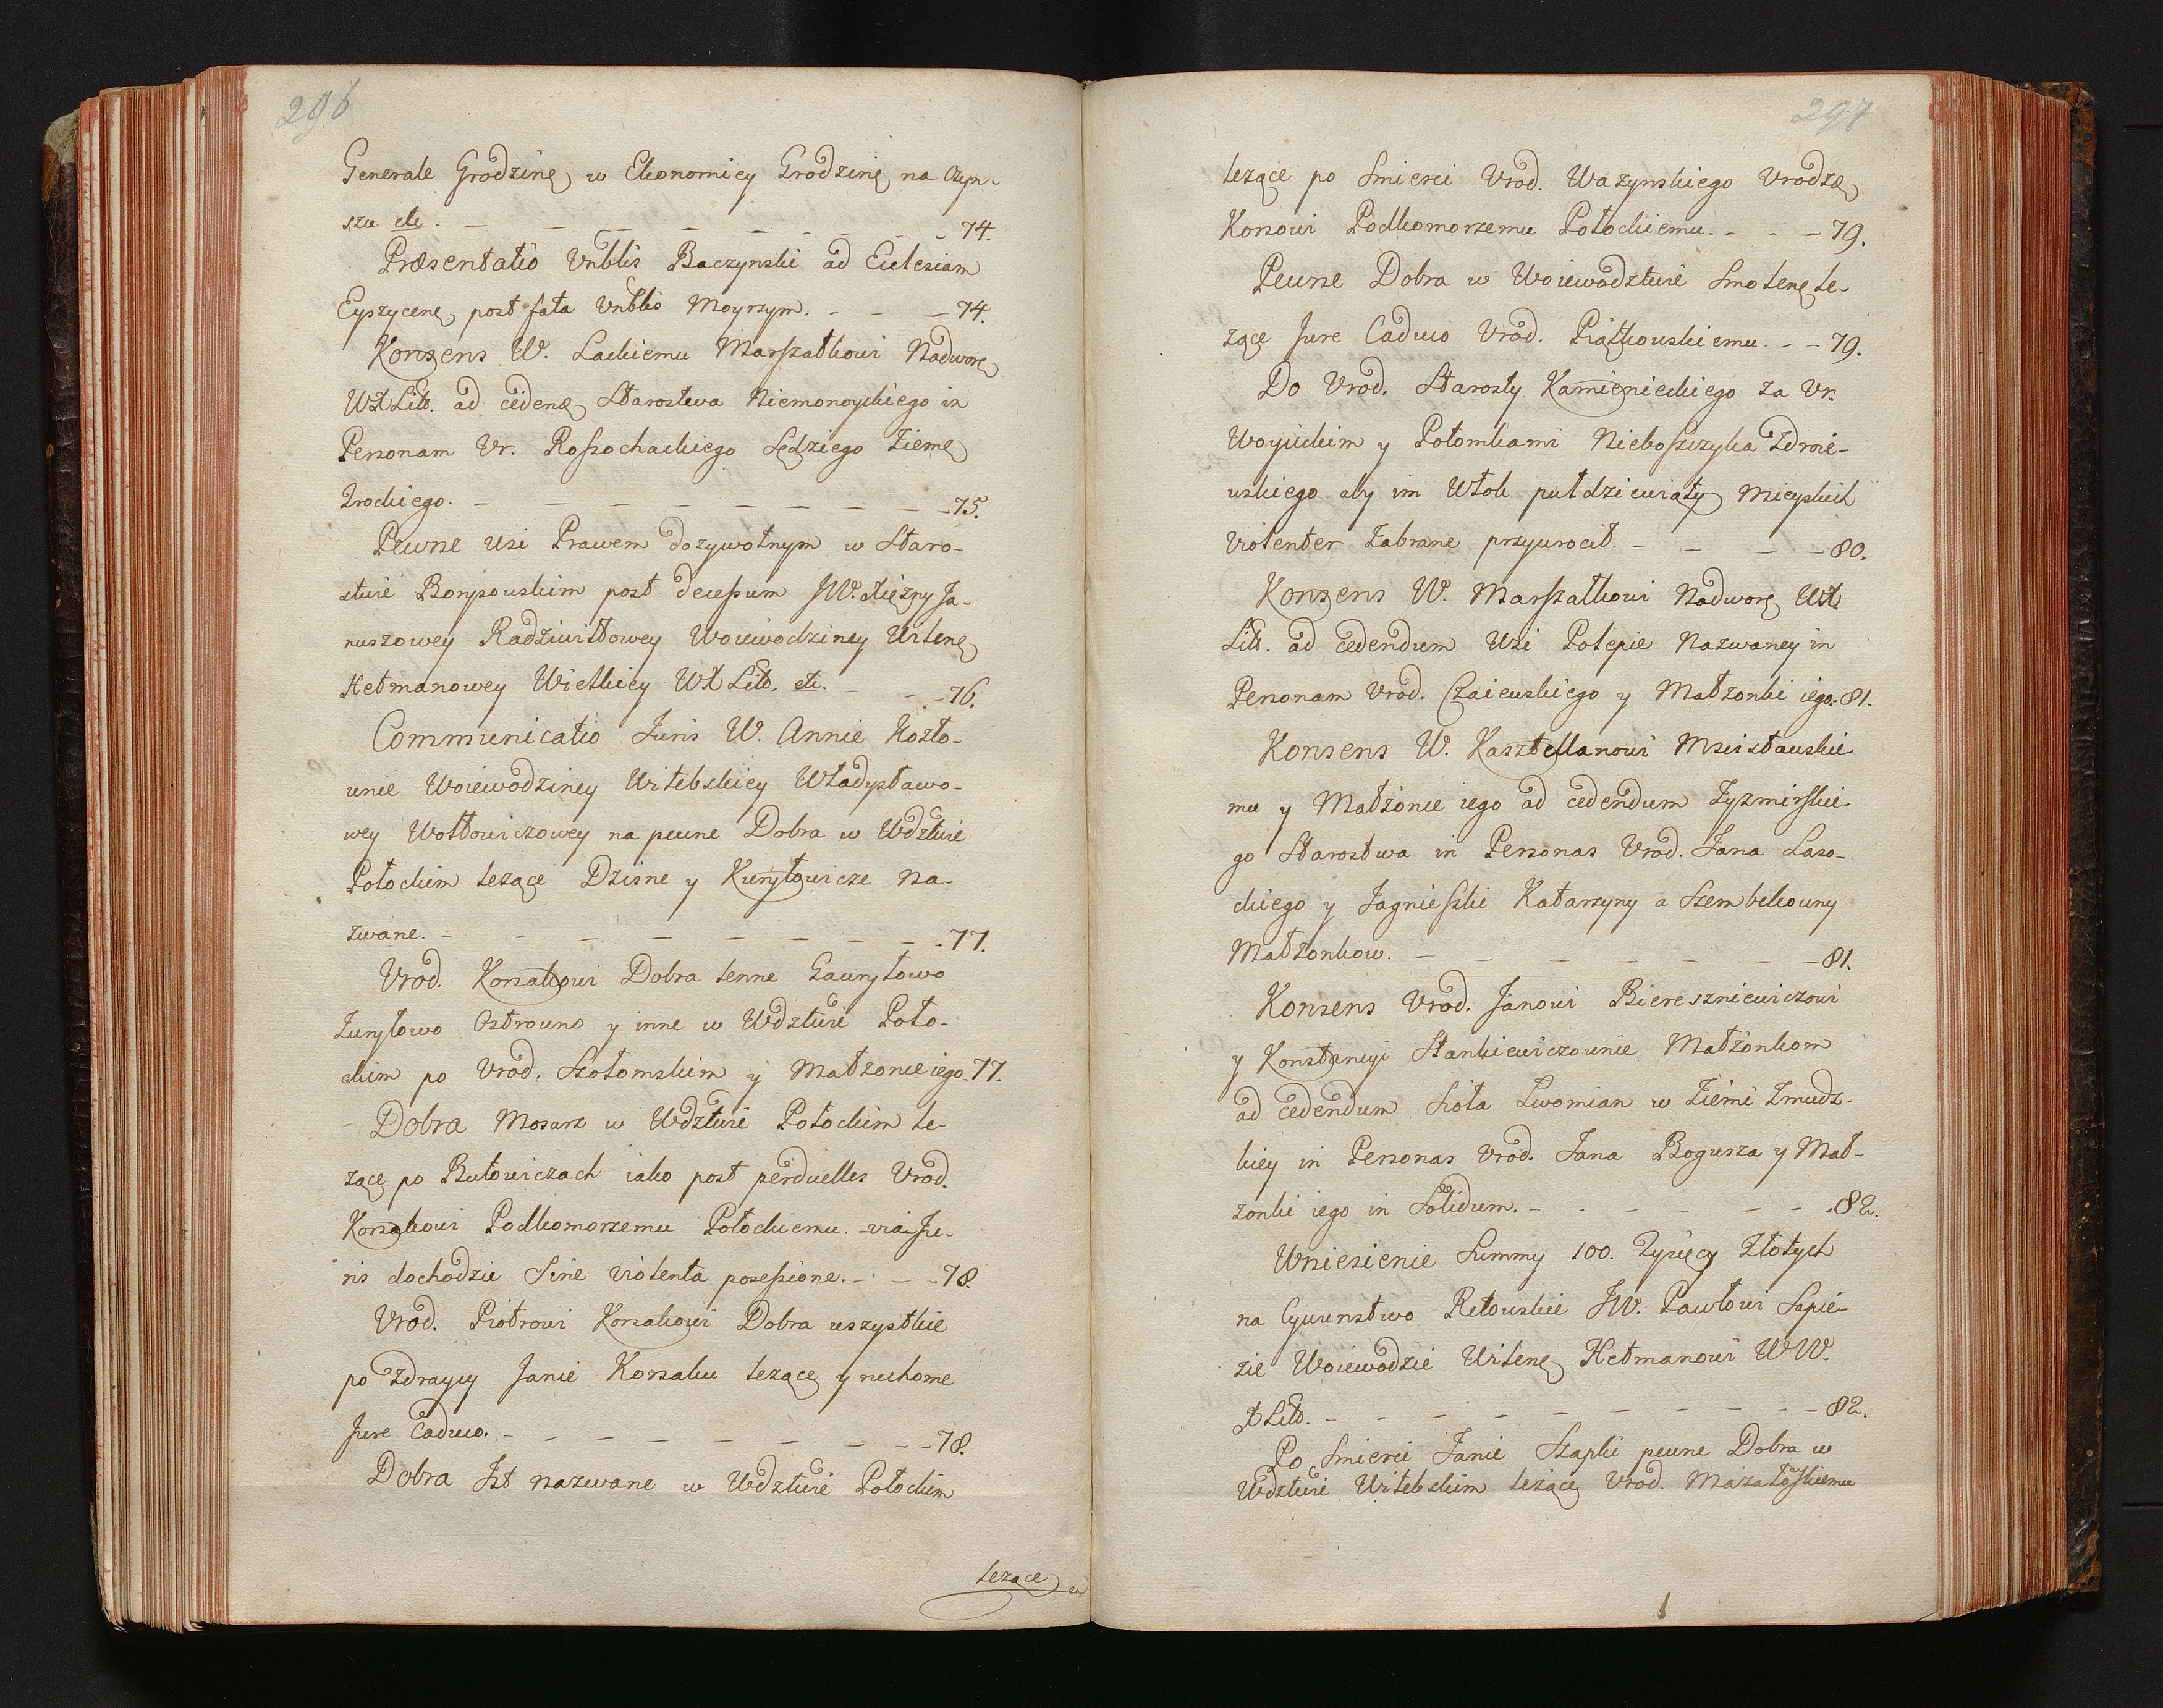 296
Generale Grodzinę w Ekonomiey Grodzinę na Czyn-
szu etc. - - - - - - - - 74.
Præsentatio Vnblis Baczynski ad Eiclesiam
Eyszycenę post fata Vnblis Moyrzym. - - - 74.
Konsens W. Lackiemu Marszałkowi Nadworę
WXLitt. ad cedenę Starostwa Niemonoyckiego in
Personam Vr. Rossochackiego Sędziego Ziemę
Trockiego. - - - - - - - - 75.
Pewne Wsi Prawem dozywotnym w Staro-
stwie Borysowskim post decessum JW. Xiężny Ja-
nuszowey Radziwiłłowey Woiewodziney Wilenę
Hetmanowey Wielkiey WXLitt. etc. - - - 76.
Communicatio Juris W. Annie Hozło-
wnie Woiewodziney Witebskiey Władysławo-
wey Wołłowiczowey na pewne Dobra w Wdztwie
Połockim lezące Dzisne y Kuryłowicze na-
zwane. - - - - - - - - 77.
Vrod. Korsakowi Dobra lenne Gawryłowo
Zuryłowo Ostrowno y inne w Wdztwie Poło-
ckim po Vrod. Szołomskim y Małzonce iego. 77.
Dobra Mosarz w Wdztwie Połockim le-
zące po Butowiczach iako post perduelles Vrod.
Korsakowi Podkomorzemu Połockiemu. - via Ju-
ris dochodzie Sine violenta posessione. - - - 78.
Vrod. Piotrowi Korsakowi Dobra wszystkie
po Zdraycy Janie Korsaku lezące y ruchome
Jure Caduco. - - - - - - - - 78.
Dobra Jst nazwane w Wdztwie Połockim
lezące
297
lezące po Smierci Vrod. Wazynskiego Vrodzę
Korsowi Podkomorzemu Połockiemu. - - - 79.
Pewne Dobra w Woiewodztwie Smolenę le-
zące Jure Caduco Vrod. Piątkowskiemu. - - 79.
Do Vrod. Starosty Kamienieckiego za Vr.
Woycickim y Potomkami Nieboszczyka Zdroie-
wskiego aby im Włok pułdziewiąty Mieyskich
violenter Zabrane przywrocił. - - - - 80.
Konsens W. Marszałkowi Nadworę WX
Litt. ad cedendum Wsi Polepie Nazwaney in
Personam Vrod. Czaiewskiego y Małzonki iego. 81.
Konsens W. Kasztellanowi Mscisławskie-
mu y Małżonce iego ad cedendum Zyzmirskie-
go Starostwa in Personas Vrod. Jana Laso-
ckiego y Jagnieszki Katarzyny a Szembekowny
Małzonkow. - - - - - - - 81.
Konsens Vrod. Janowi Biereszniewiczowi
y Konstancyi Stankiewiczownie Małżonkom
ad cedendum Sioła Zwomian w Ziemi Zmudz-
kiey in Personas Vrod. Jana Bogusza y Mał-
zonki iego in Solidum. - - - - - - 82.
Wniesienie Summy 100. Tysięcy Złotych
na Cywunstwo Retowskie JW. Pawłowi Sapie-
zie Woiewodzie Wilenę Hetmanowi WW.
XLitt. - - - - - - - - - 82.
Po Smierci Janie Szapki pewne Dobra w
Wdztwie Witebskim leżące Vrod.